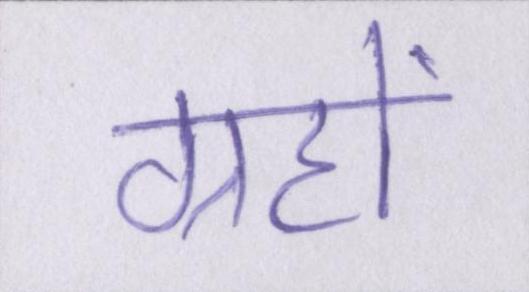 ग्रहों